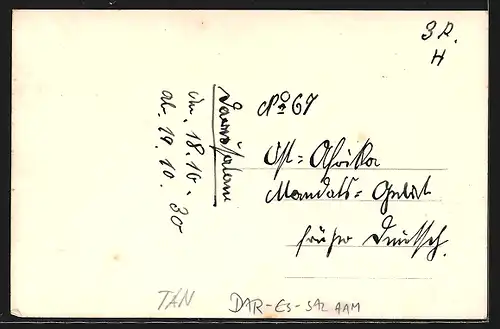 3R.
H
Daressalam
an. 18. 10.
ab. 19. 10. 30
No 67
Ost=Afrika
Mandats=Gebiet
früher Deutsch.
TAN
DAR-ES-SAL AAM